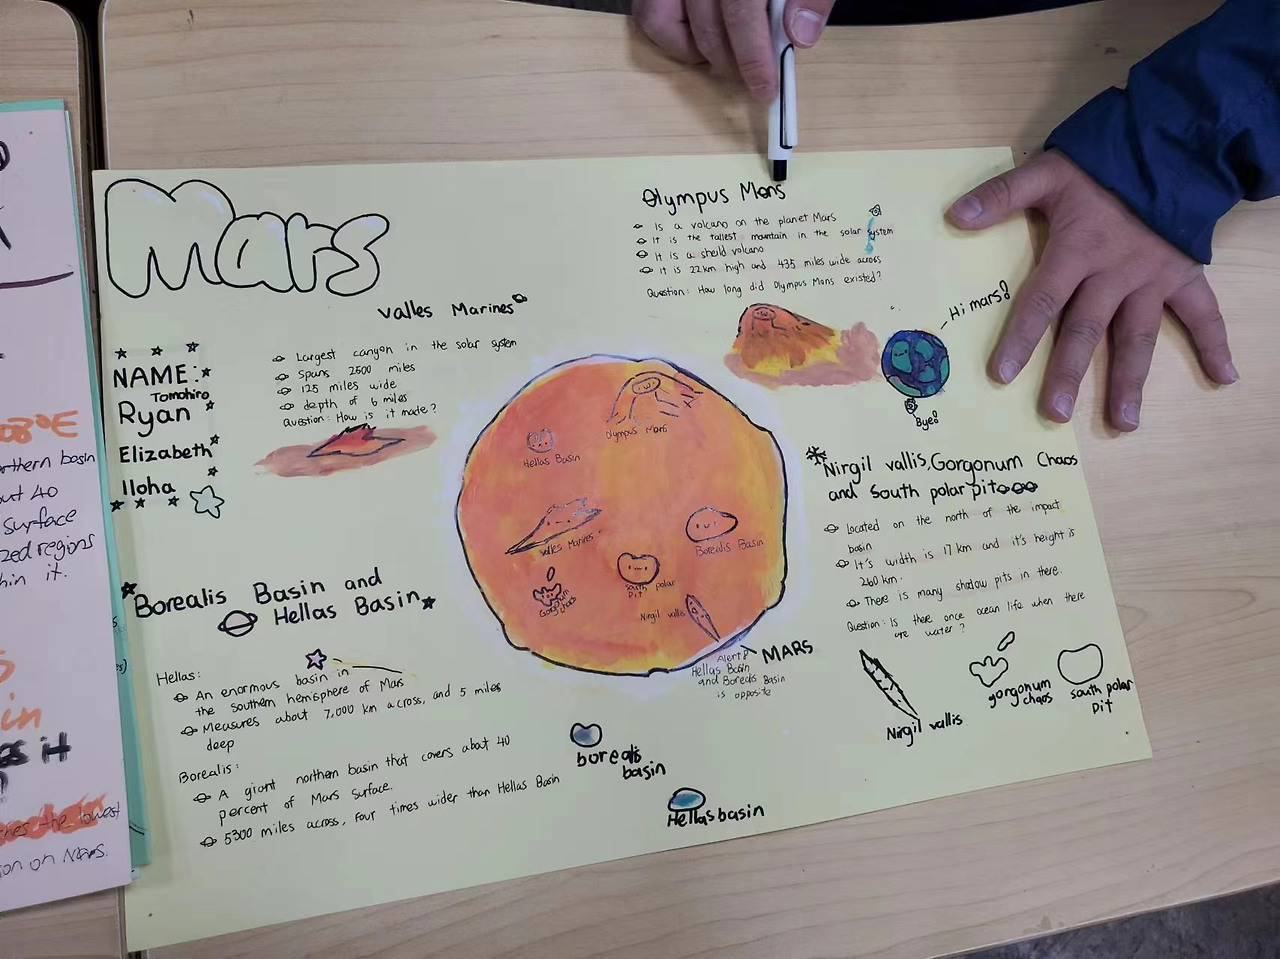 Mars
NAME:
Tomohiro
Ryan
Elizabeth
Iloha
Valles Marines
Largest canyon in the solar system
Spans 2500 miles
125 miles wide
depth of 6 miles
Question: How is it made?
Olympus Mons
Is a volcano on the planet Mars
It is the tallest mountain in the solar system
It is a sheild volcano
It is 22km high and 435 miles wide across
Question: How long did Olympus Mons existed?
Hi mars!
Bye!
Olympus Mons
Hellas Basin
Valles Marines
Borealis Basin
South polar
Pit
Gorgonum
chaos
Nirgil vallis
MARS
Alert!
Hellas Basin
and Borealis Basin
is opposite
Nirgil vallis, Gorgonum Chaos
and South polar pit
Located on the north of the impact
basin
It's width is 17 km and it's height is
260 km.
There is many shadow pits in there.
Question: Is there once ocean life when there
are water?
Nirgil vallis
gorgonum
chaos
south polar
pit
Borealis Basin and
Hellas Basin
Hellas:
An enormous basin in
the southern hemisphere of Mars
Measures about 7,000 km across, and 5 miles
deep
Borealis:
A giant northern basin that covers abat 40
percent of Mars surface.
5300 miles across, four times wider than Hellas Basin
borealis
basin
Hellas basin
rthern basin
out 40
surface
zed regions
hin it.
in
it
the lowest
on on Mars.